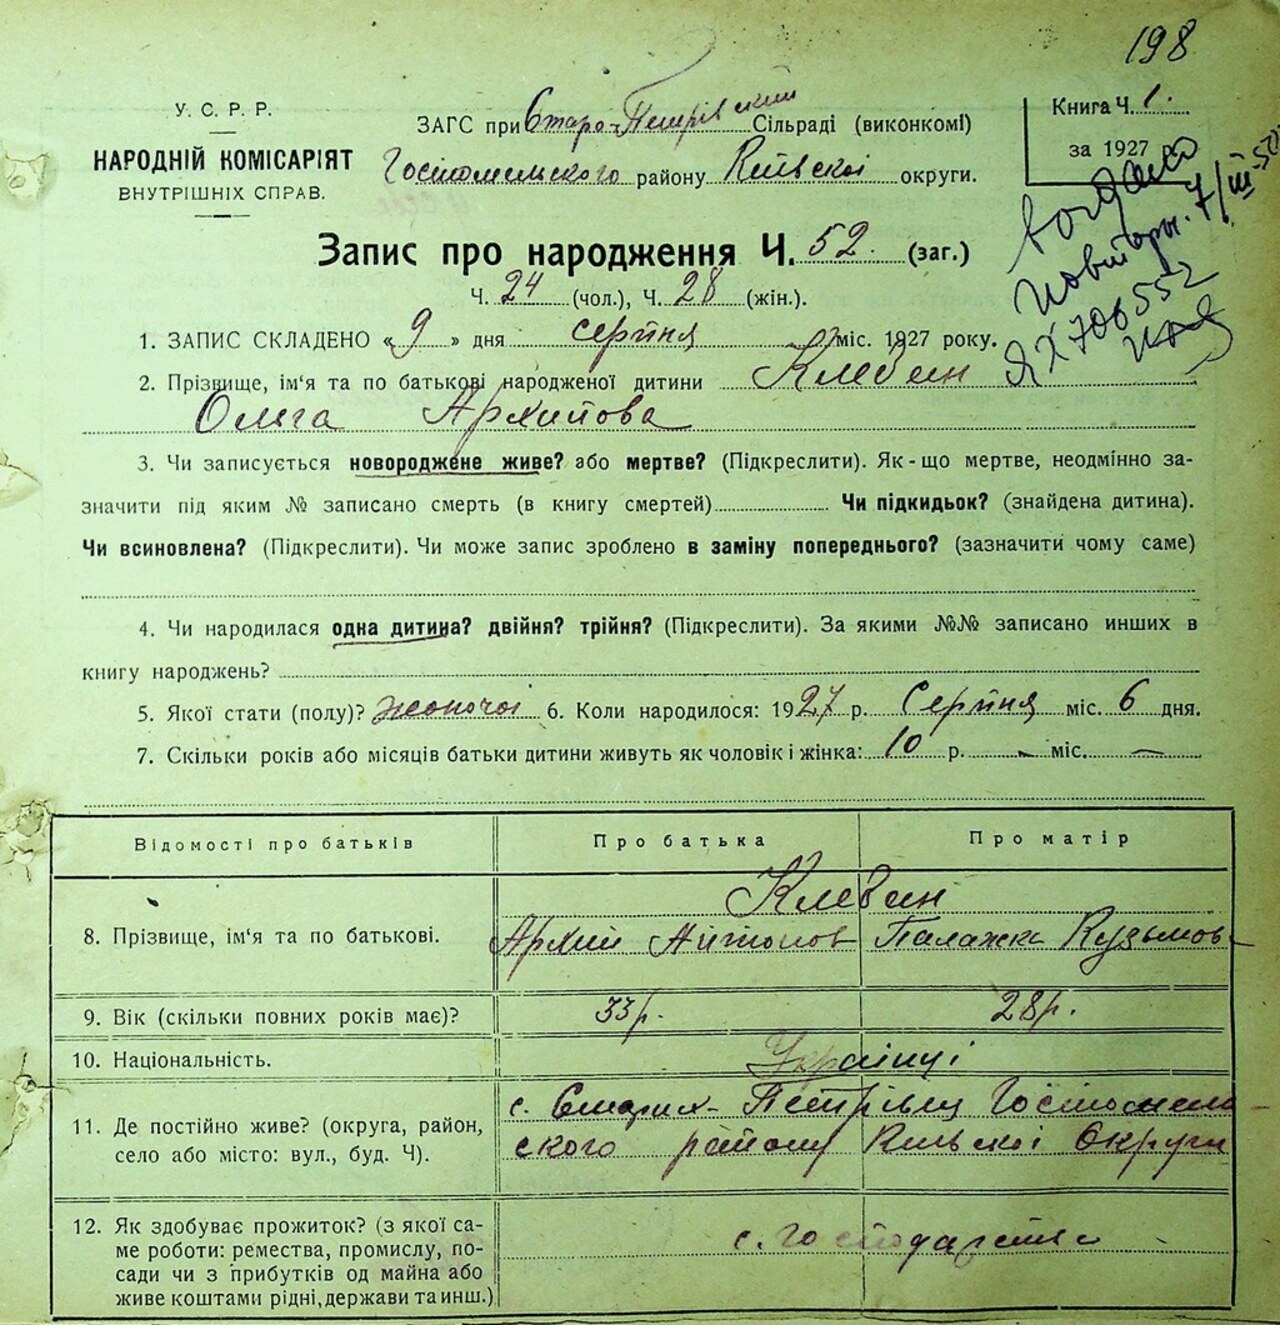 198
У. С. Р. Р.
НАРОДНІЙ КОМІСАРІЯТ
ВНУТРІШНІХ СПРАВ.
ЗАГС при Старо-Петрівский Сільраді (виконкомі)
Гостомельского району Київскої округи.
Книга Ч. 1.
за 1927 р.
видано
повторн. 7/III-50
ЯХ 706552
Запис про народження Ч. 52. (заг.)
Ч. 24 (чол.), Ч. 28 (жін.).
1. ЗАПИС СКЛАДЕНО «9» дня серпня міс. 1927 року.
2. Прізвище, ім'я та по батькові народженої дитини Клебан
Ольга Архипова
3. Чи записується новороджене живе? або мертве? (Підкреслити). Як-що мертве, неодмінно за-
значити під яким № записано смерть (в книгу смертей) Чи підкидьок? (знайдена дитина).
Чи всиновлена? (Підкреслити). Чи може запис зроблено в заміну попереднього? (зазначити чому саме)
4. Чи народилася одна дитина? двійня? трійня? (Підкреслити). За якими №№ записано инших в
книгу народжень?
5. Якої стати (полу)? жоночої 6. Коли народилося: 1927 р. Серпня міс. 6 дня.
7. Скільки років або місяців батьки дитини живуть як чоловік і жінка: 10 р. — міс. —
Відомості про батьків Про батька Про матір
Клебан
8. Прізвище, ім'я та по батькові. Архип Антонов Палажка Кузьмов
9. Вік (скільки повних років має)? 33 р. 28 р.
10. Національність. Українці
11. Де постійно живе? (округа, район,
село або місто: вул., буд. Ч).
с. Старих-Петрівці Гостомель
ского району Київскої Округи
12. Як здобуває прожиток? (з якої са-
ме роботи: ремества, промислу, по-
сади чи з прибутків од майна або
живе коштами рідні, держави та инш.)
с. Господарство